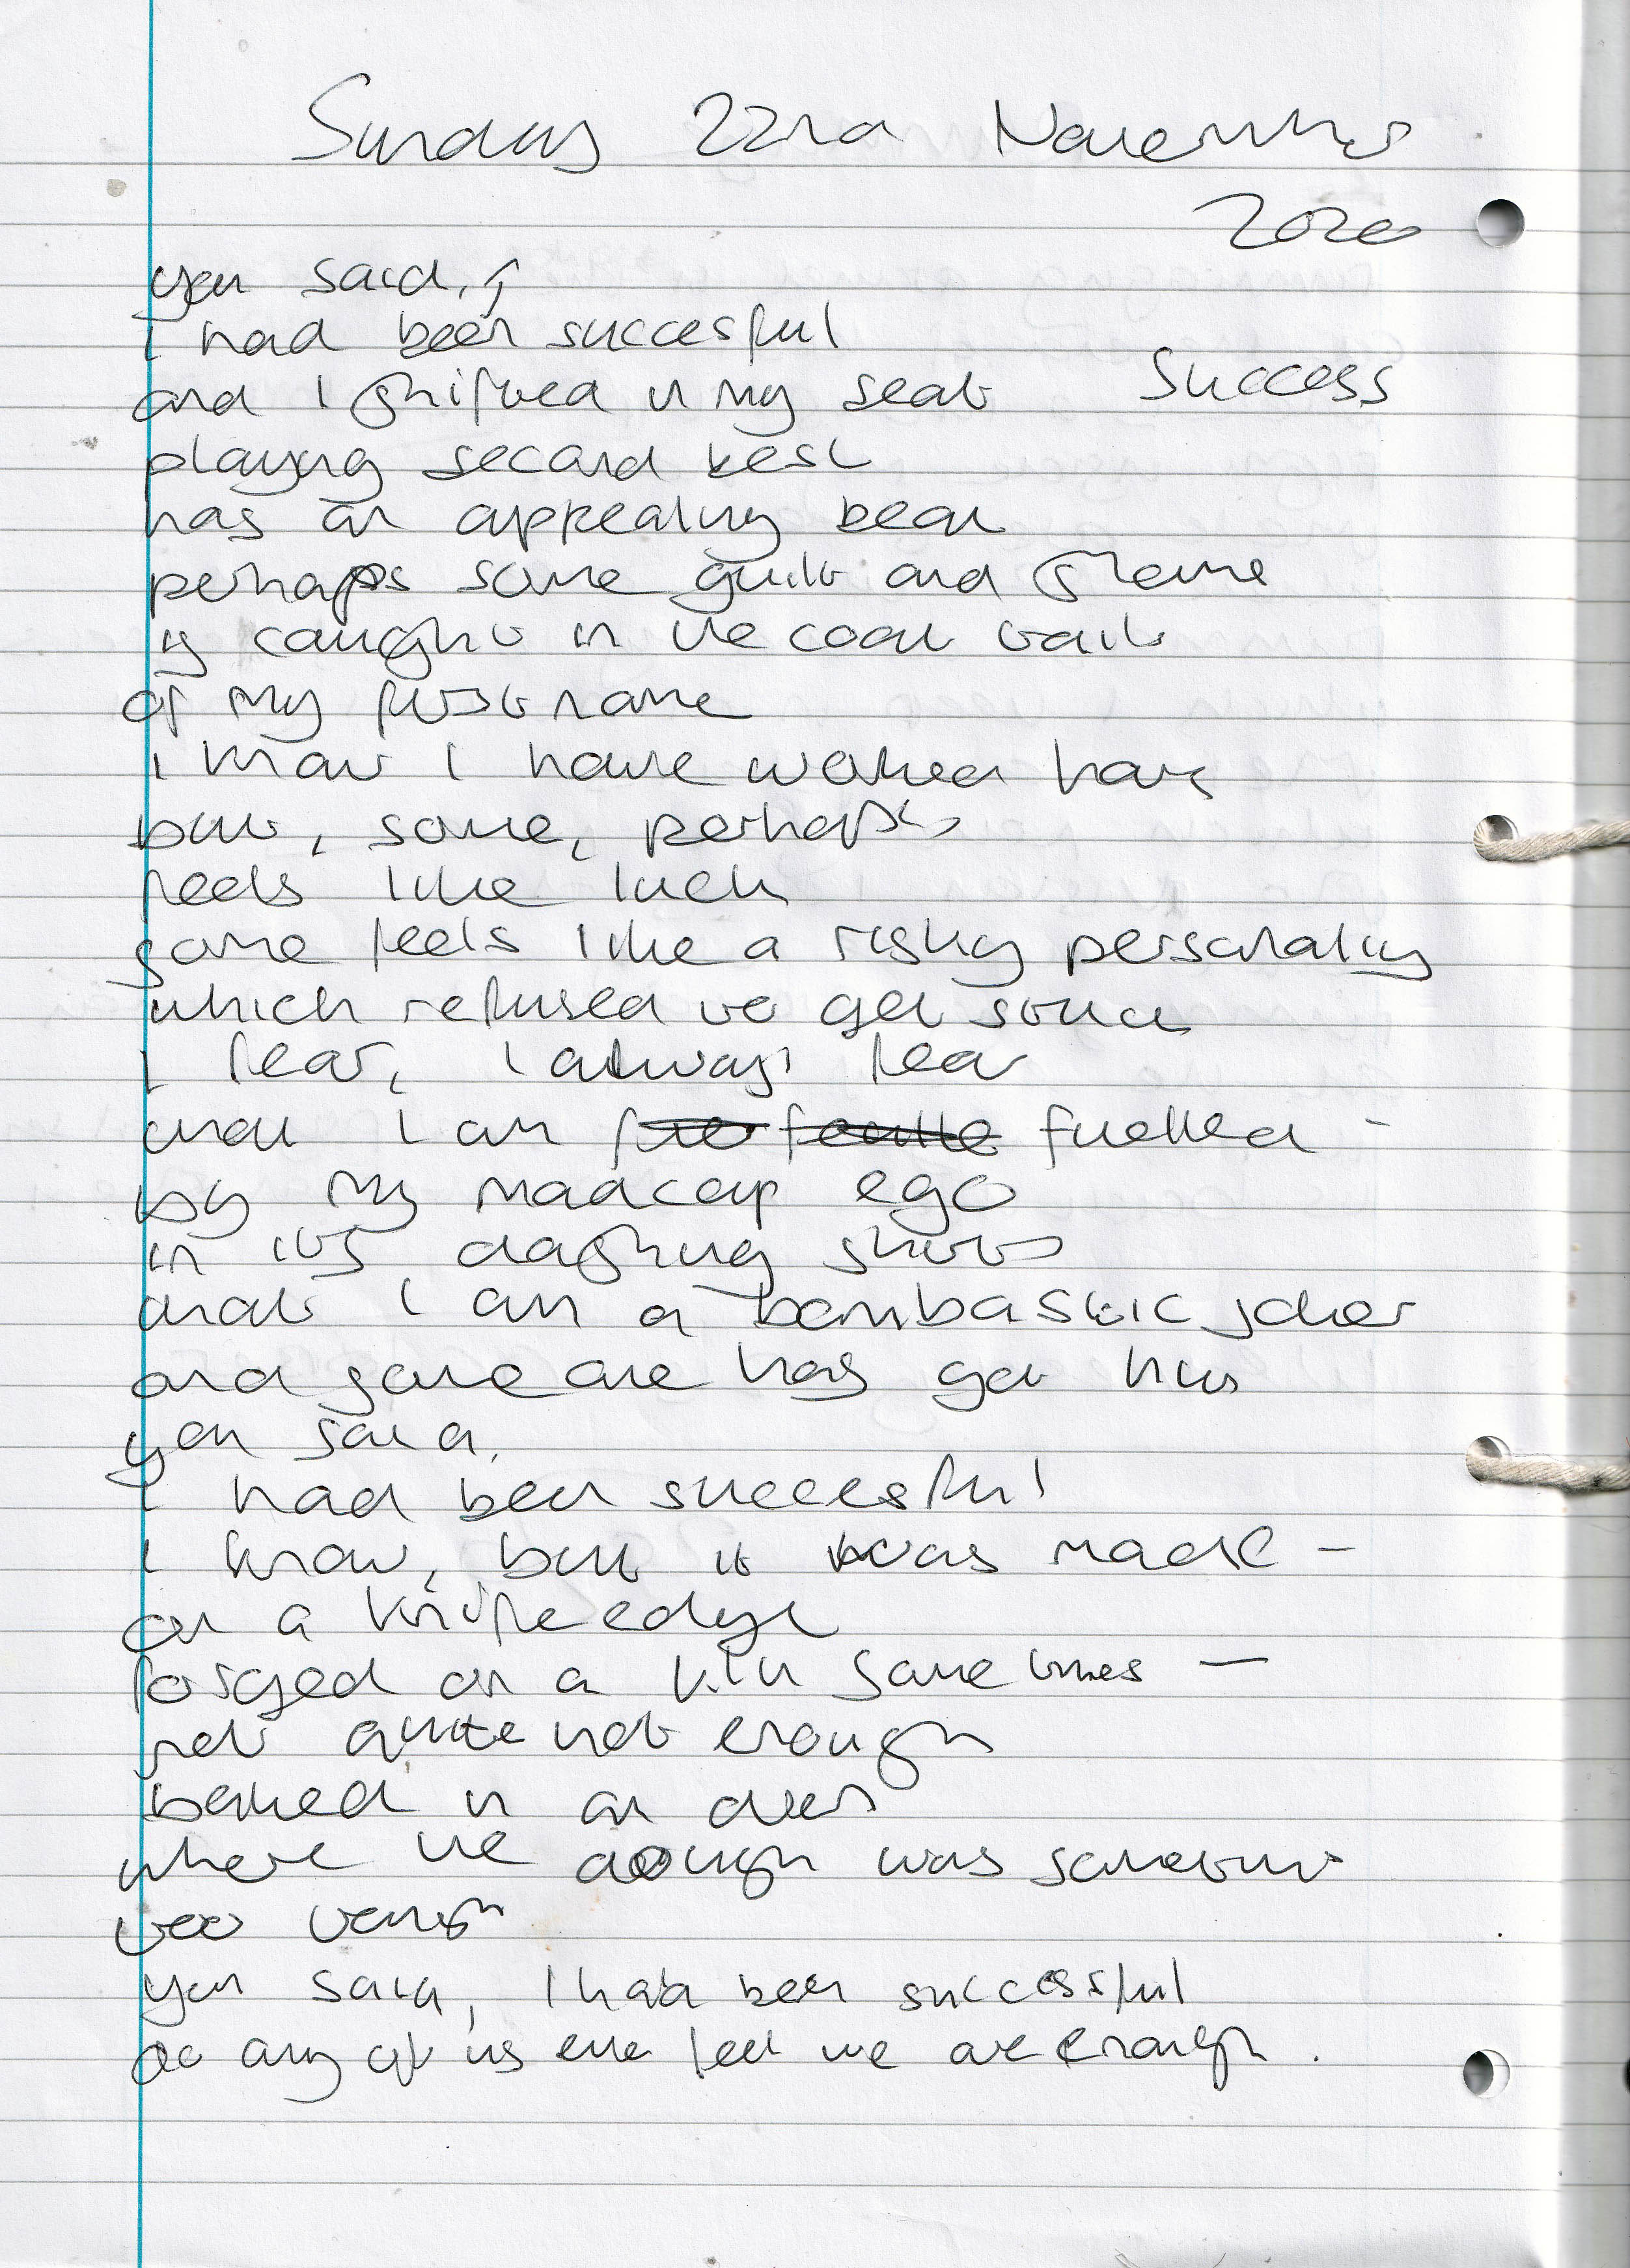 Sunday 22nd November
2020
you said,
I had been succesful
and I shifted in my seat
Success
playing second best
has an appealing beat
perhaps some guilt and shame
is caught in the coat tail
of my first name
I know I have worked hard
but, some, perhaps
feels like luck
some feels like a risky personality
which refused to get stuck
I fear, I always fear
that I am fuelled -
by my madcap ego
in its dashing shirts
that I am a bombastic joker
and some one has got hurt
you said,
I had been succesful
I know, but it was made -
on a knife edge
forged on a kiln sometimes -
not quite hot enough
baked in an oven
where the dough was sometimes
too tough
you said, I had been successful
do any of us ever feel we are enough.